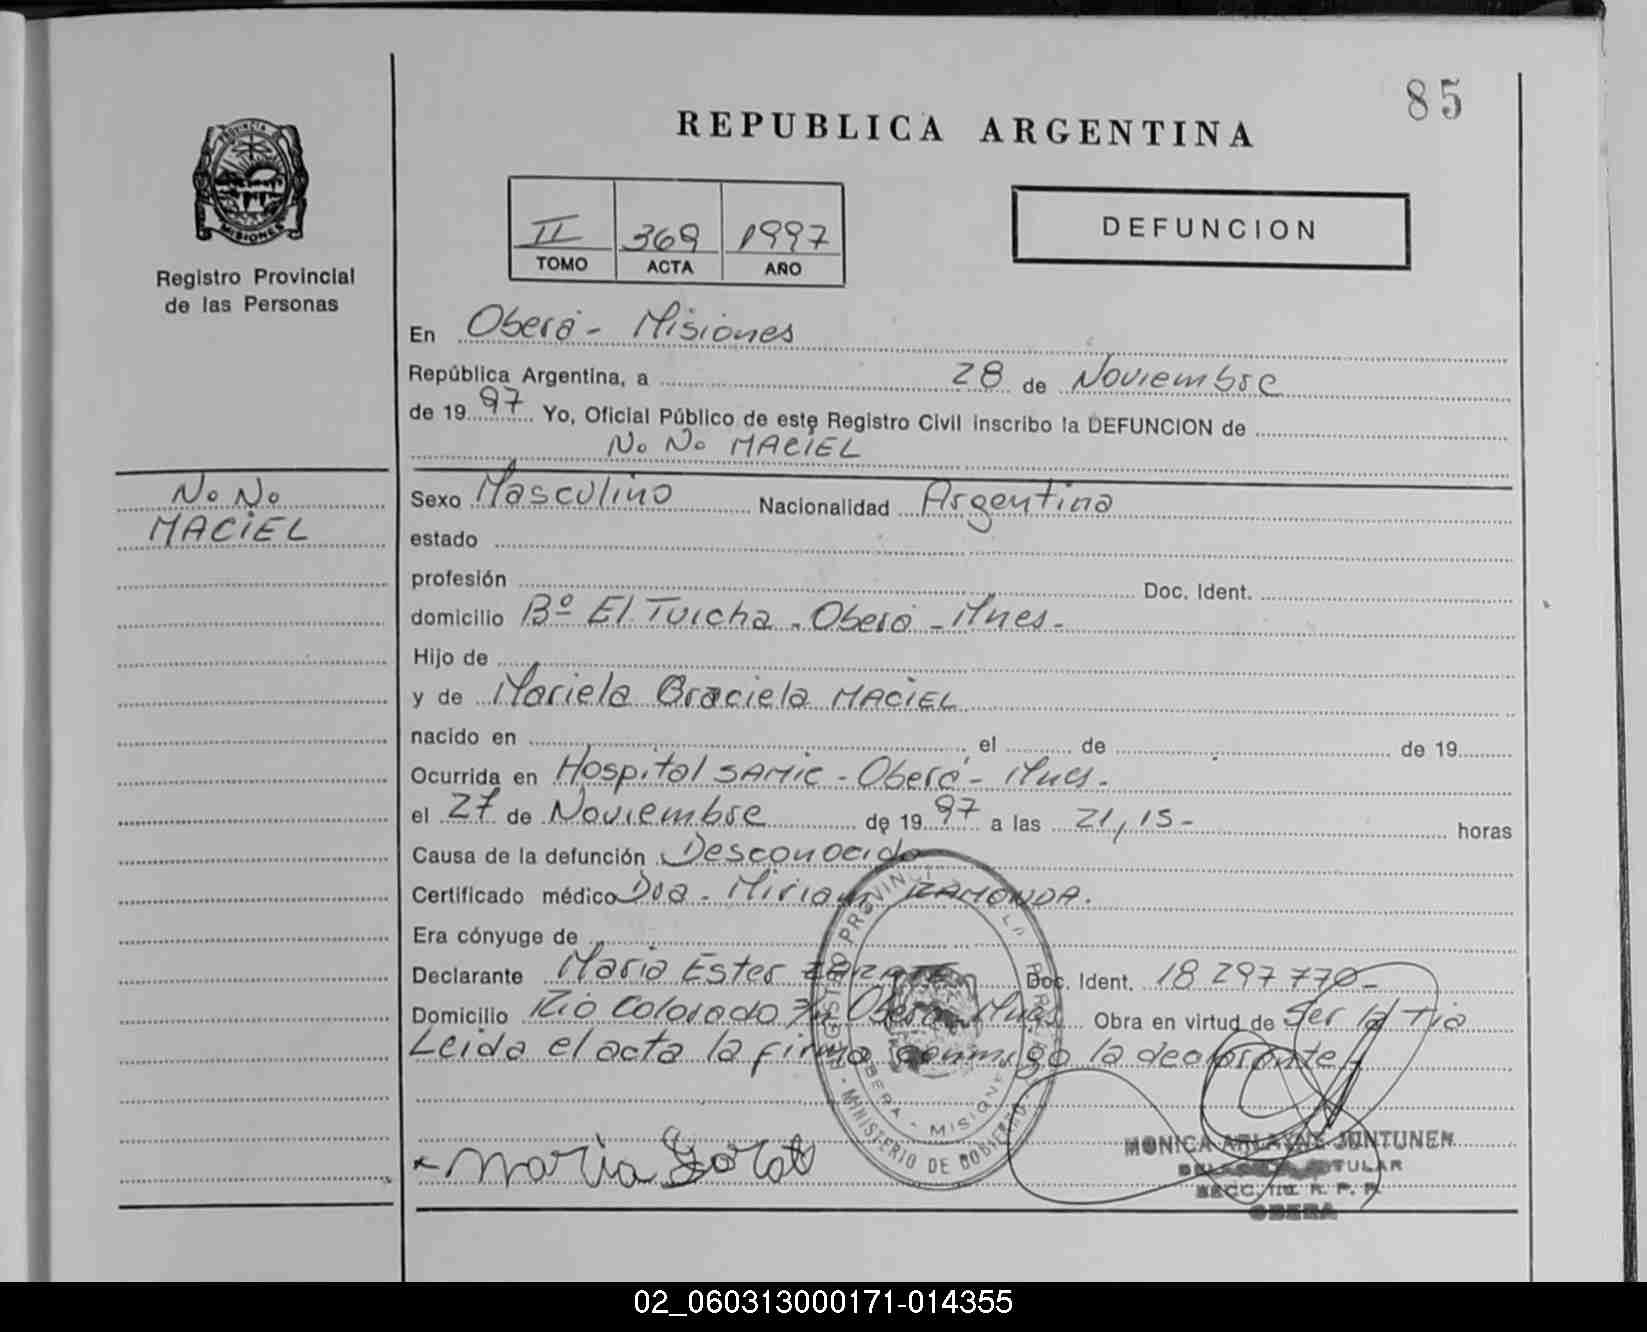 85
REPUBLICA ARGENTINA
PROVINCIA DE
MISIONES
Registro Provincial
de las Personas
II 369 1997
TOMO ACTA AÑO
DEFUNCION
En Oberá - Misiones
República Argentina, a 28 de Noviembre
de 19 97 Yo, Oficial Público de este Registro Civil inscribo la DEFUNCION de
No No MACIEL
No No
MACIEL
Sexo Masculino Nacionalidad Argentina
estado
profesión Doc. Ident.
domicilio Bº El Tuicha - Oberá - Mnes -
Hijo de
y de Mariela Graciela MACIEL
nacido en el de de 19
Ocurrida en Hospital SAMIC - Oberá - Mnes.
el 27 de Noviembre de 19 97 a las 21,15 - horas
Causa de la defunción Desconocida
Certificado médico Dra. Miriam RAMONDA.
Era cónyuge de
Declarante Maria Ester Doc. Ident. 18 297 770 -
Domicilio Rio Colorado Oberá Mnes Obra en virtud de Ser la Tia
Leida el acta la firma conmigo la declarante -
MINISTERIO DE GOBIERNO
OBERA - MISIONES
Maria
MONICA JUNTUNEN
TITULAR
SECC. R. P. P.
OBERA
02_060313000171-014355